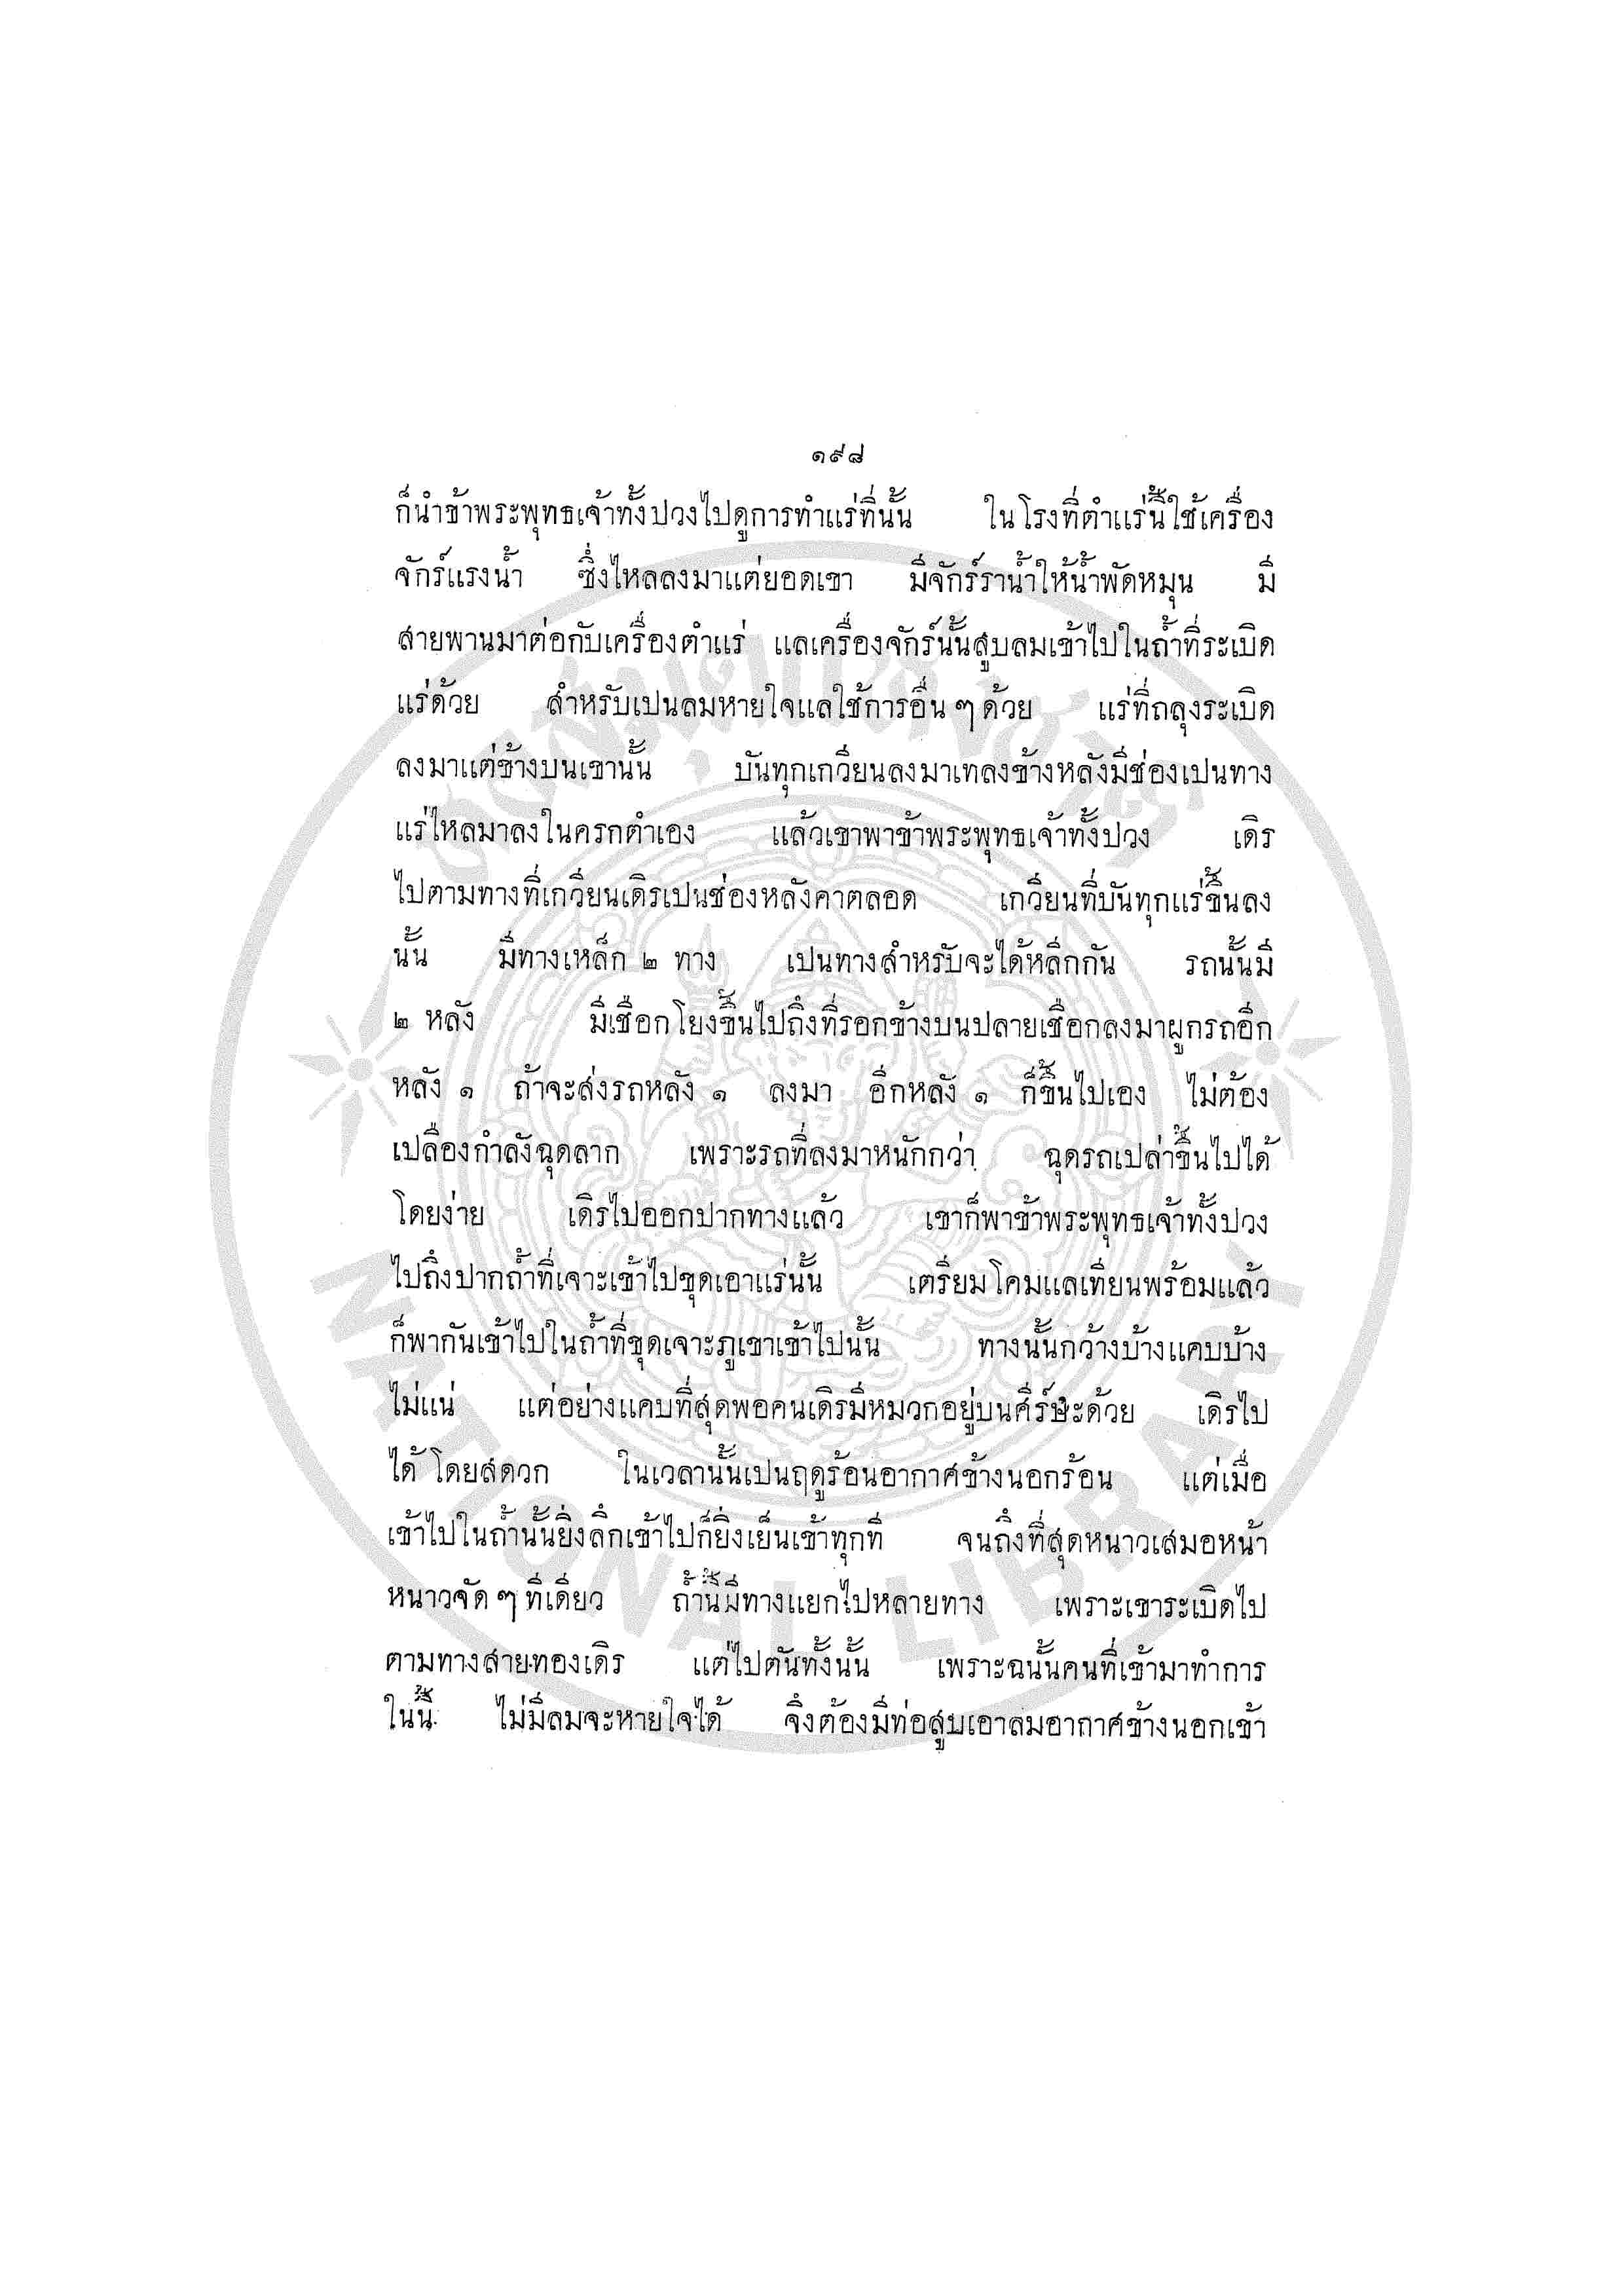 ๑๙๘
ก็นำข้าพระพุทธเจ้าทั้งปวงไปดูการทำแร่ที่นั้น ในโรงที่ตำแร่นี้ใช้เครื่อง
จักร์แรงน้ำ ซึ่งไหลลงมาแต่ยอดเขา มีจักร์ราน้ำให้น้ำพัดหมุน มี
สายพานมาต่อกับเครื่องตำแร่ แลเครื่องจักร์นั้นสูบลมเข้าไปในถ้ำที่ระเบิด
แร่ด้วย สำหรับเปนลมหายใจแลใช้การอื่น ๆ ด้วย แร่ที่ถลุงระเบิด
ลงมาแต่ข้างบนเขานั้น บันทุกเกวียนลงมาเทลงข้างหลังมีช่องเปนทาง
แร่ไหลมาลงในครกตำเอง แล้วเขาพาข้าพระพุทธเจ้าทั้งปวง เดิร
ไปตามทางที่เกวียนเดิรเปนช่องหลังคาตลอด เกวียนที่บันทุกแร่ขึ้นลง
นั้น มีทางเหล็ก ๒ ทาง เปนทางสำหรับจะได้หลีกกัน รถนั้นมี
๒ หลัง มีเชือกโยงขึ้นไปถึงที่รอกข้างบนปลายเชือกลงมาผูกรถอีก
หลัง ๑ ถ้าจะส่งรถหลัง ๑ ลงมา อีกหลัง ๑ ก็ขึ้นไปเอง ไม่ต้อง
เปลืองกำลังฉุดลาก เพราะรถที่ลงมาหนักกว่า ฉุดรถเปล่าขึ้นไปได้
โดยง่าย เดิรไปออกปากทางแล้ว เขาก็พาข้าพระพุทธเจ้าทั้งปวง
ไปถึงปากถ้ำที่เจาะเข้าไปขุดเอาแร่นั้น เตรียมโคมแลเทียนพร้อมแล้ว
ก็พากันเข้าไปในถ้ำที่ขุดเจาะภูเขาเข้าไปนั้น ทางนั้นกว้างบ้างแคบบ้าง
ไม่แน่ แต่อย่างแคบที่สุดพอคนเดิรมีหมวกอยู่บนศีร์ษะด้วย เดิรไป
ได้โดยสดวก ในเวลานั้นเปนฤดูร้อนอากาศข้างนอกร้อน แต่เมื่อ
เข้าไปในถ้ำนั้นยิ่งลึกเข้าไปก็ยิ่งเย็นเข้าทุกที จนถึงที่สุดหนาวเสมอหน้า
หนาวจัด ๆ ทีเดียว ถ้ำนี้มีทางแยกไปหลายทาง เพราะเขาระเบิดไป
ตามทางสายทองเดิร แต่ไปตันทั้งนั้น เพราะฉนั้นคนที่เข้ามาทำการ
ในนี้ ไม่มีลมจะหายใจได้ จึงต้องมีท่อสูบเอาลมอากาศข้างนอกเข้า
หอสมุดแห่งชาติ
NATIONAL LIBRARY